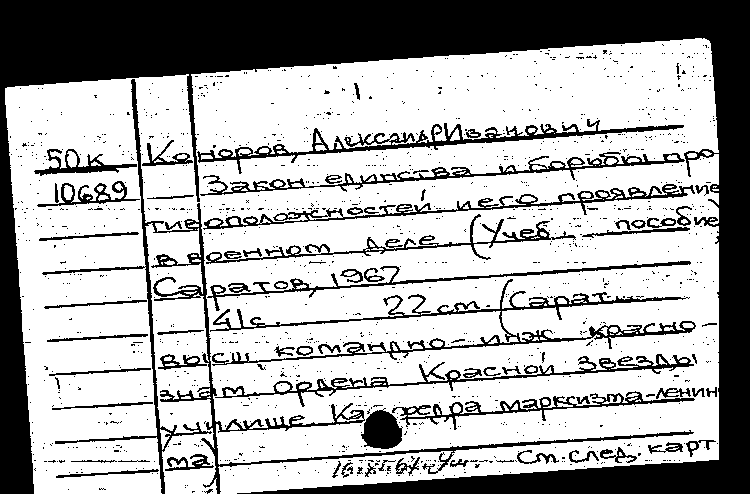 1.
50к Коноров, Александр Иванович.
10689 Закон единства и борьбы про
тивоположностей и его проявление
в военном деле. (Учеб. пособие)
Саратов, 1967
41 с. 22 см. (Сарат.
высш. командно-инж. красно-
знам. ордена Красной Звезды
училище. Кафедра марксизма-ленин
ма)
См. след. карт